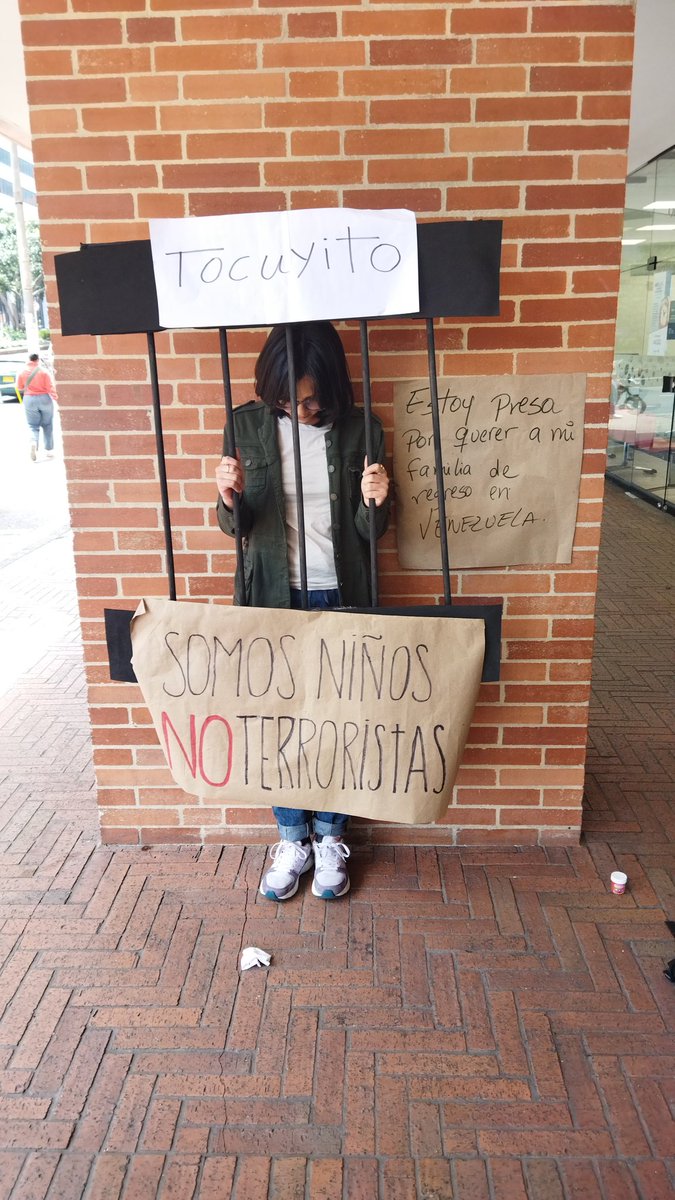 Tocuyito
Estoy Presa
Por querer a mi
familia de
regreso en
VENEZUELA.
SOMOS NIÑOS
NO TERRORISTAS